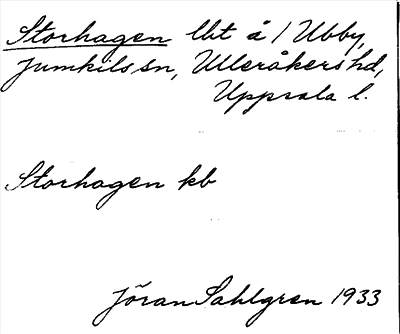 Storhagen lht å 1 Ubby,
Jumkils sn, Ulleråkers hd,
Uppsala l.
Storhagen kb
Jöran Sahlgren 1933